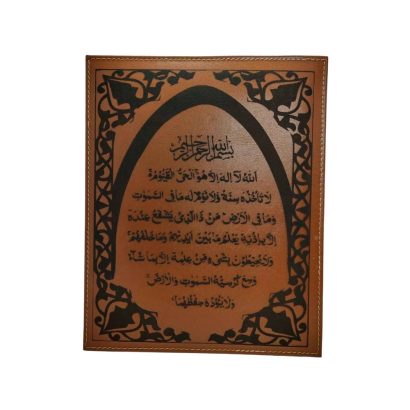 بسم الله الرحمن الرحيم
الله لا اله الا هو الحي القيوم
لا تاخذه سنة ولا نوم له ما في السموت
وما في الارض من ذا الذي يشفع عنده
الا باذنه يعلم ما بين ايديهم وما خلفهم
ولا يحيطون بشيء من علمه الا بما شاء
وسع كرسيه السموت والارض
ولا يؤده حفظهما